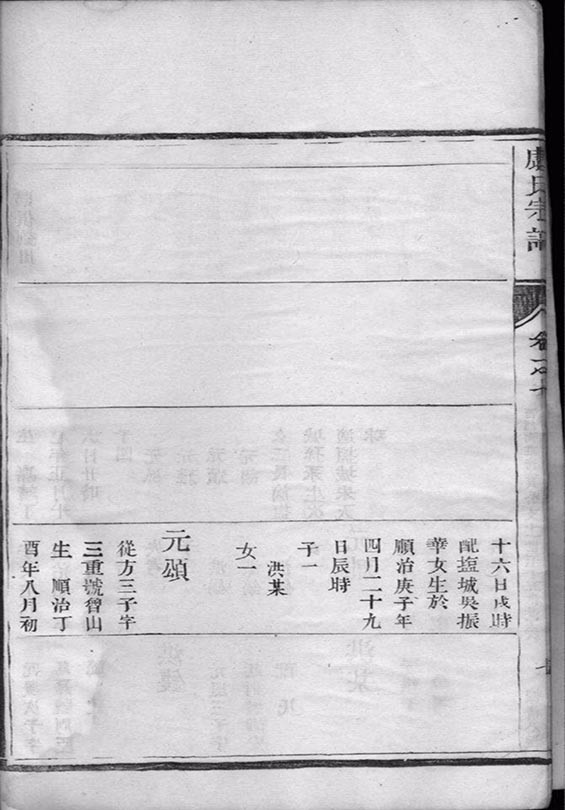 盧氏宗譜
卷之十
十六日戌時
配塩城吳振
華女生於
順治庚子年
四月二十九
日辰時
子一
洪某
女一
元頌
從方三子字
三重號曾山
生 順治丁
酉年八月初